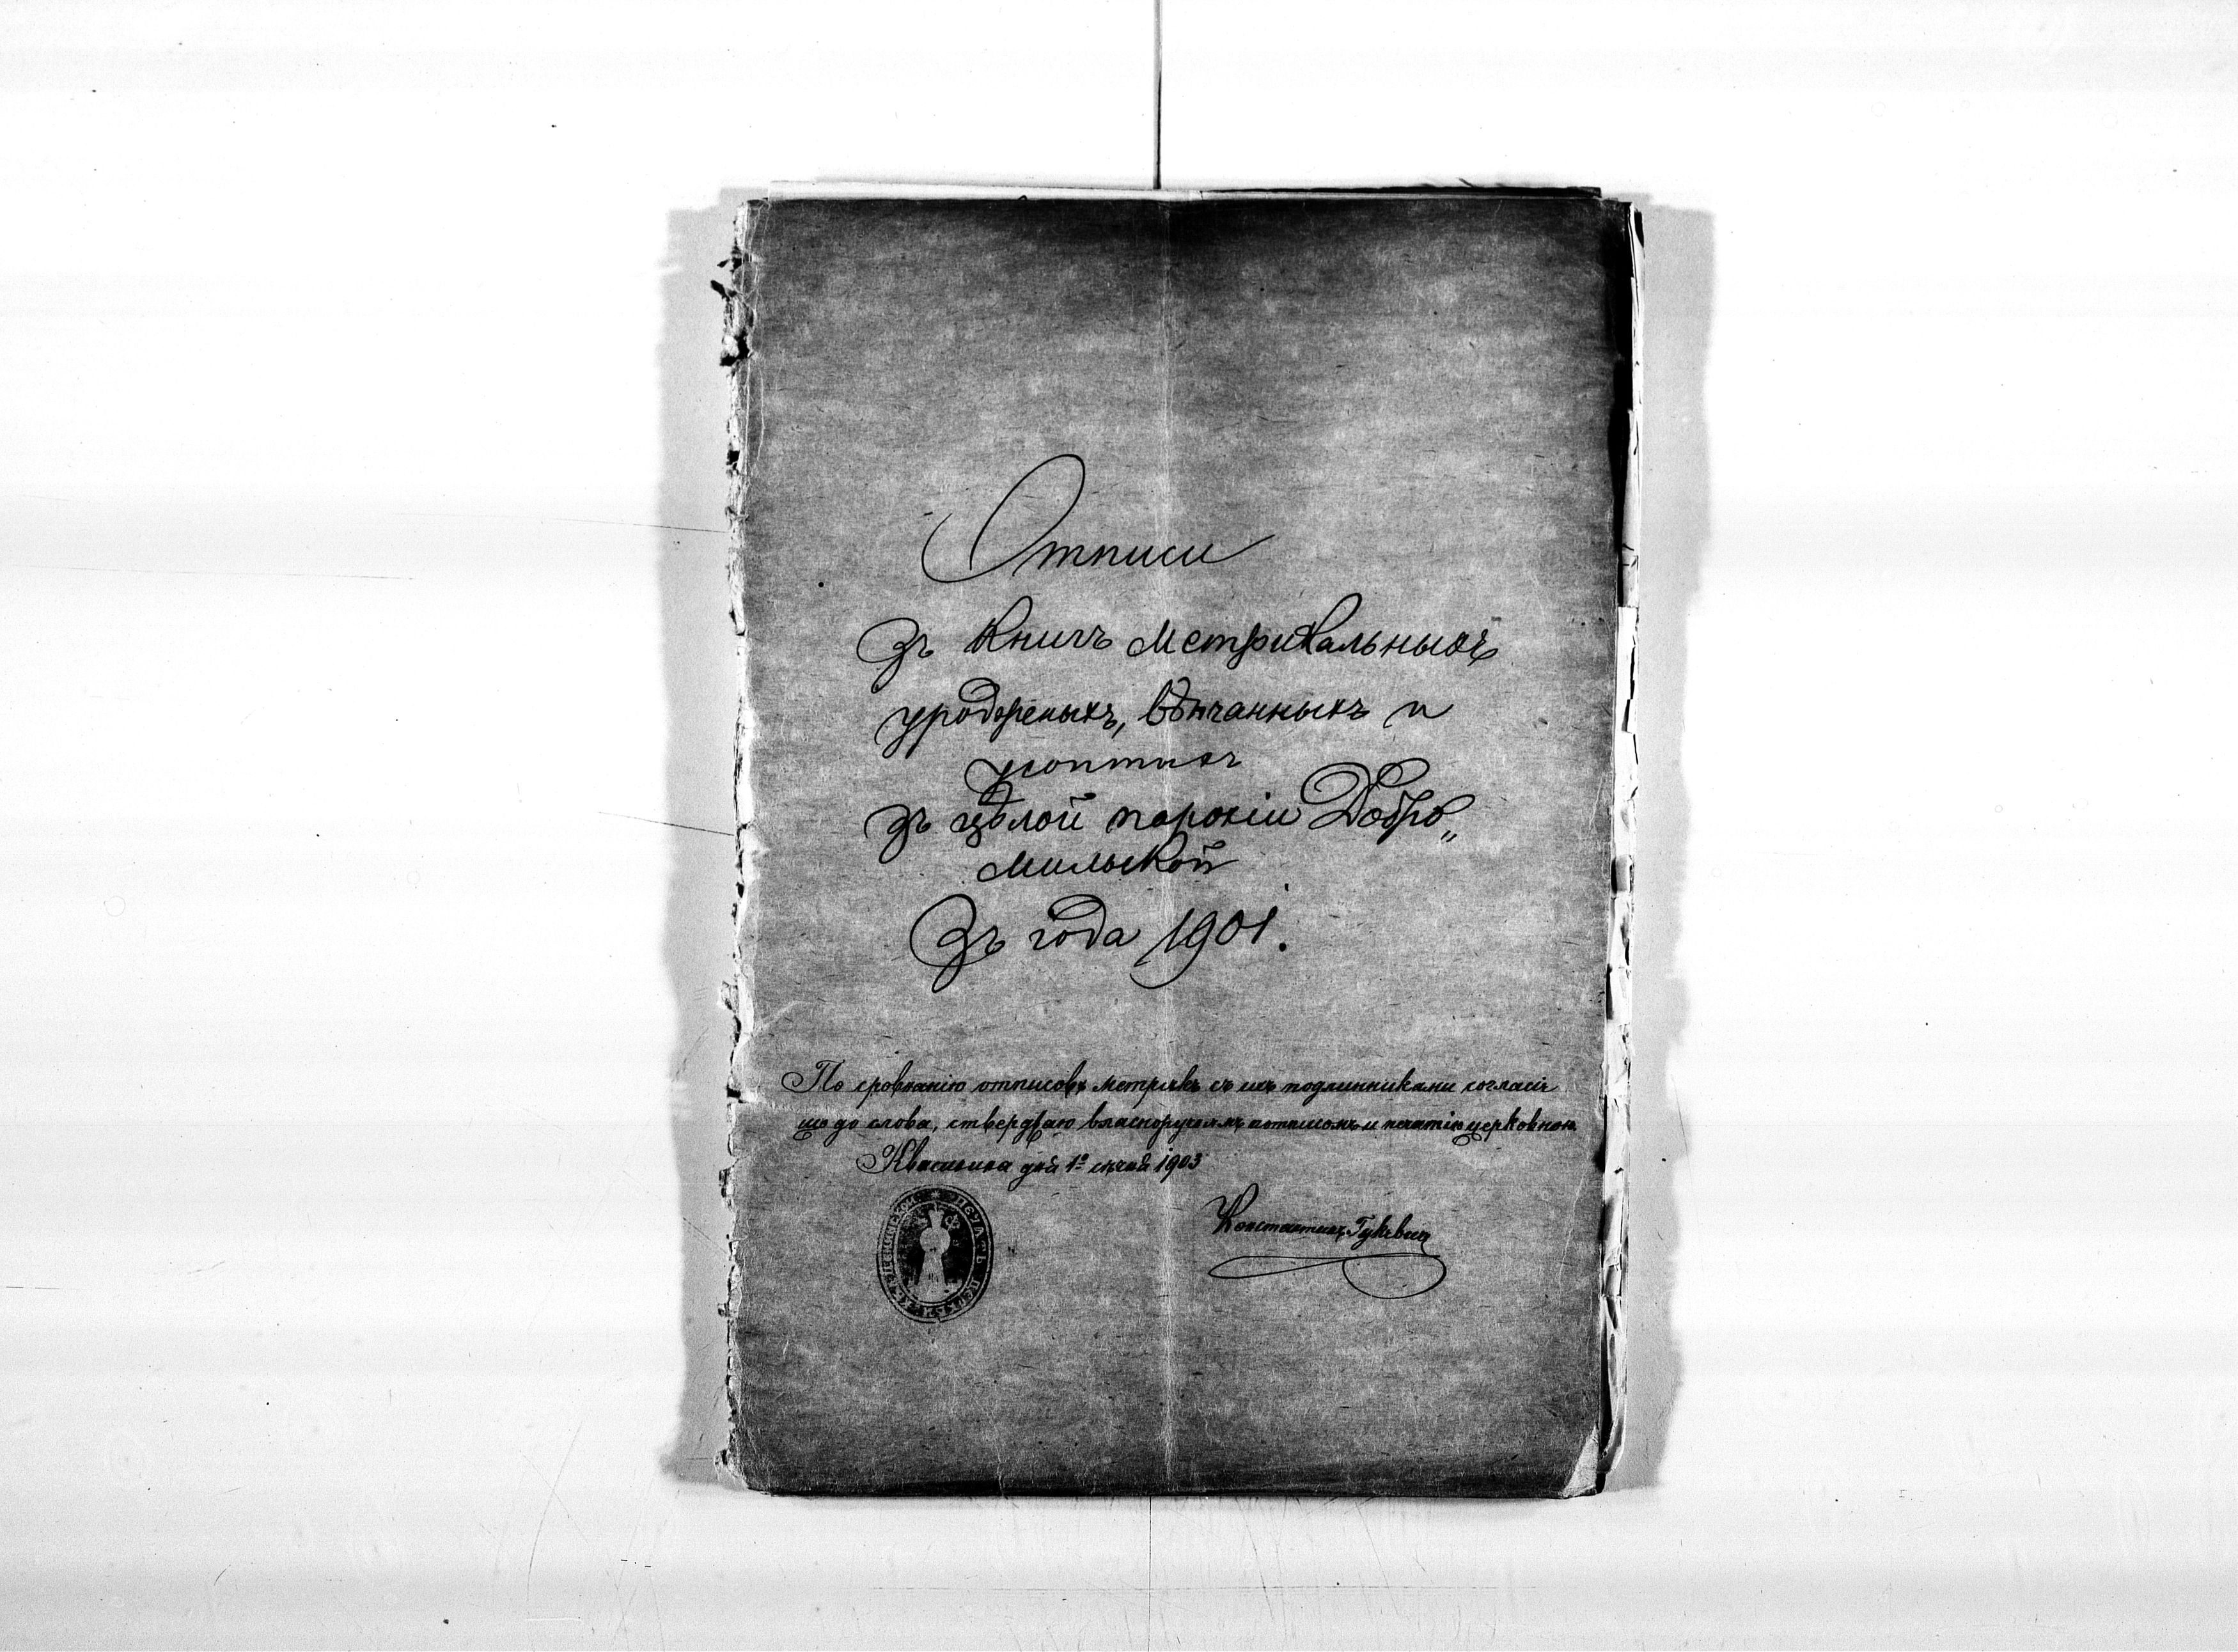 Отписи
Зъ Книгъ Метрикальныхъ
уродженыхъ, вѣнчанныхъ и
усоптихъ
зъ цѣлой парохіи Добро„
мильской
Зъ года 1901.
По сровнанію отписовъ метрикъ съ ихъ подлинниками согласіе
що до слова, ствердjaю власноручнымъ потписомъ и печатію церковною.
Квасинина дня 1º 1903
Константинъ
ПЕЧАТЬ